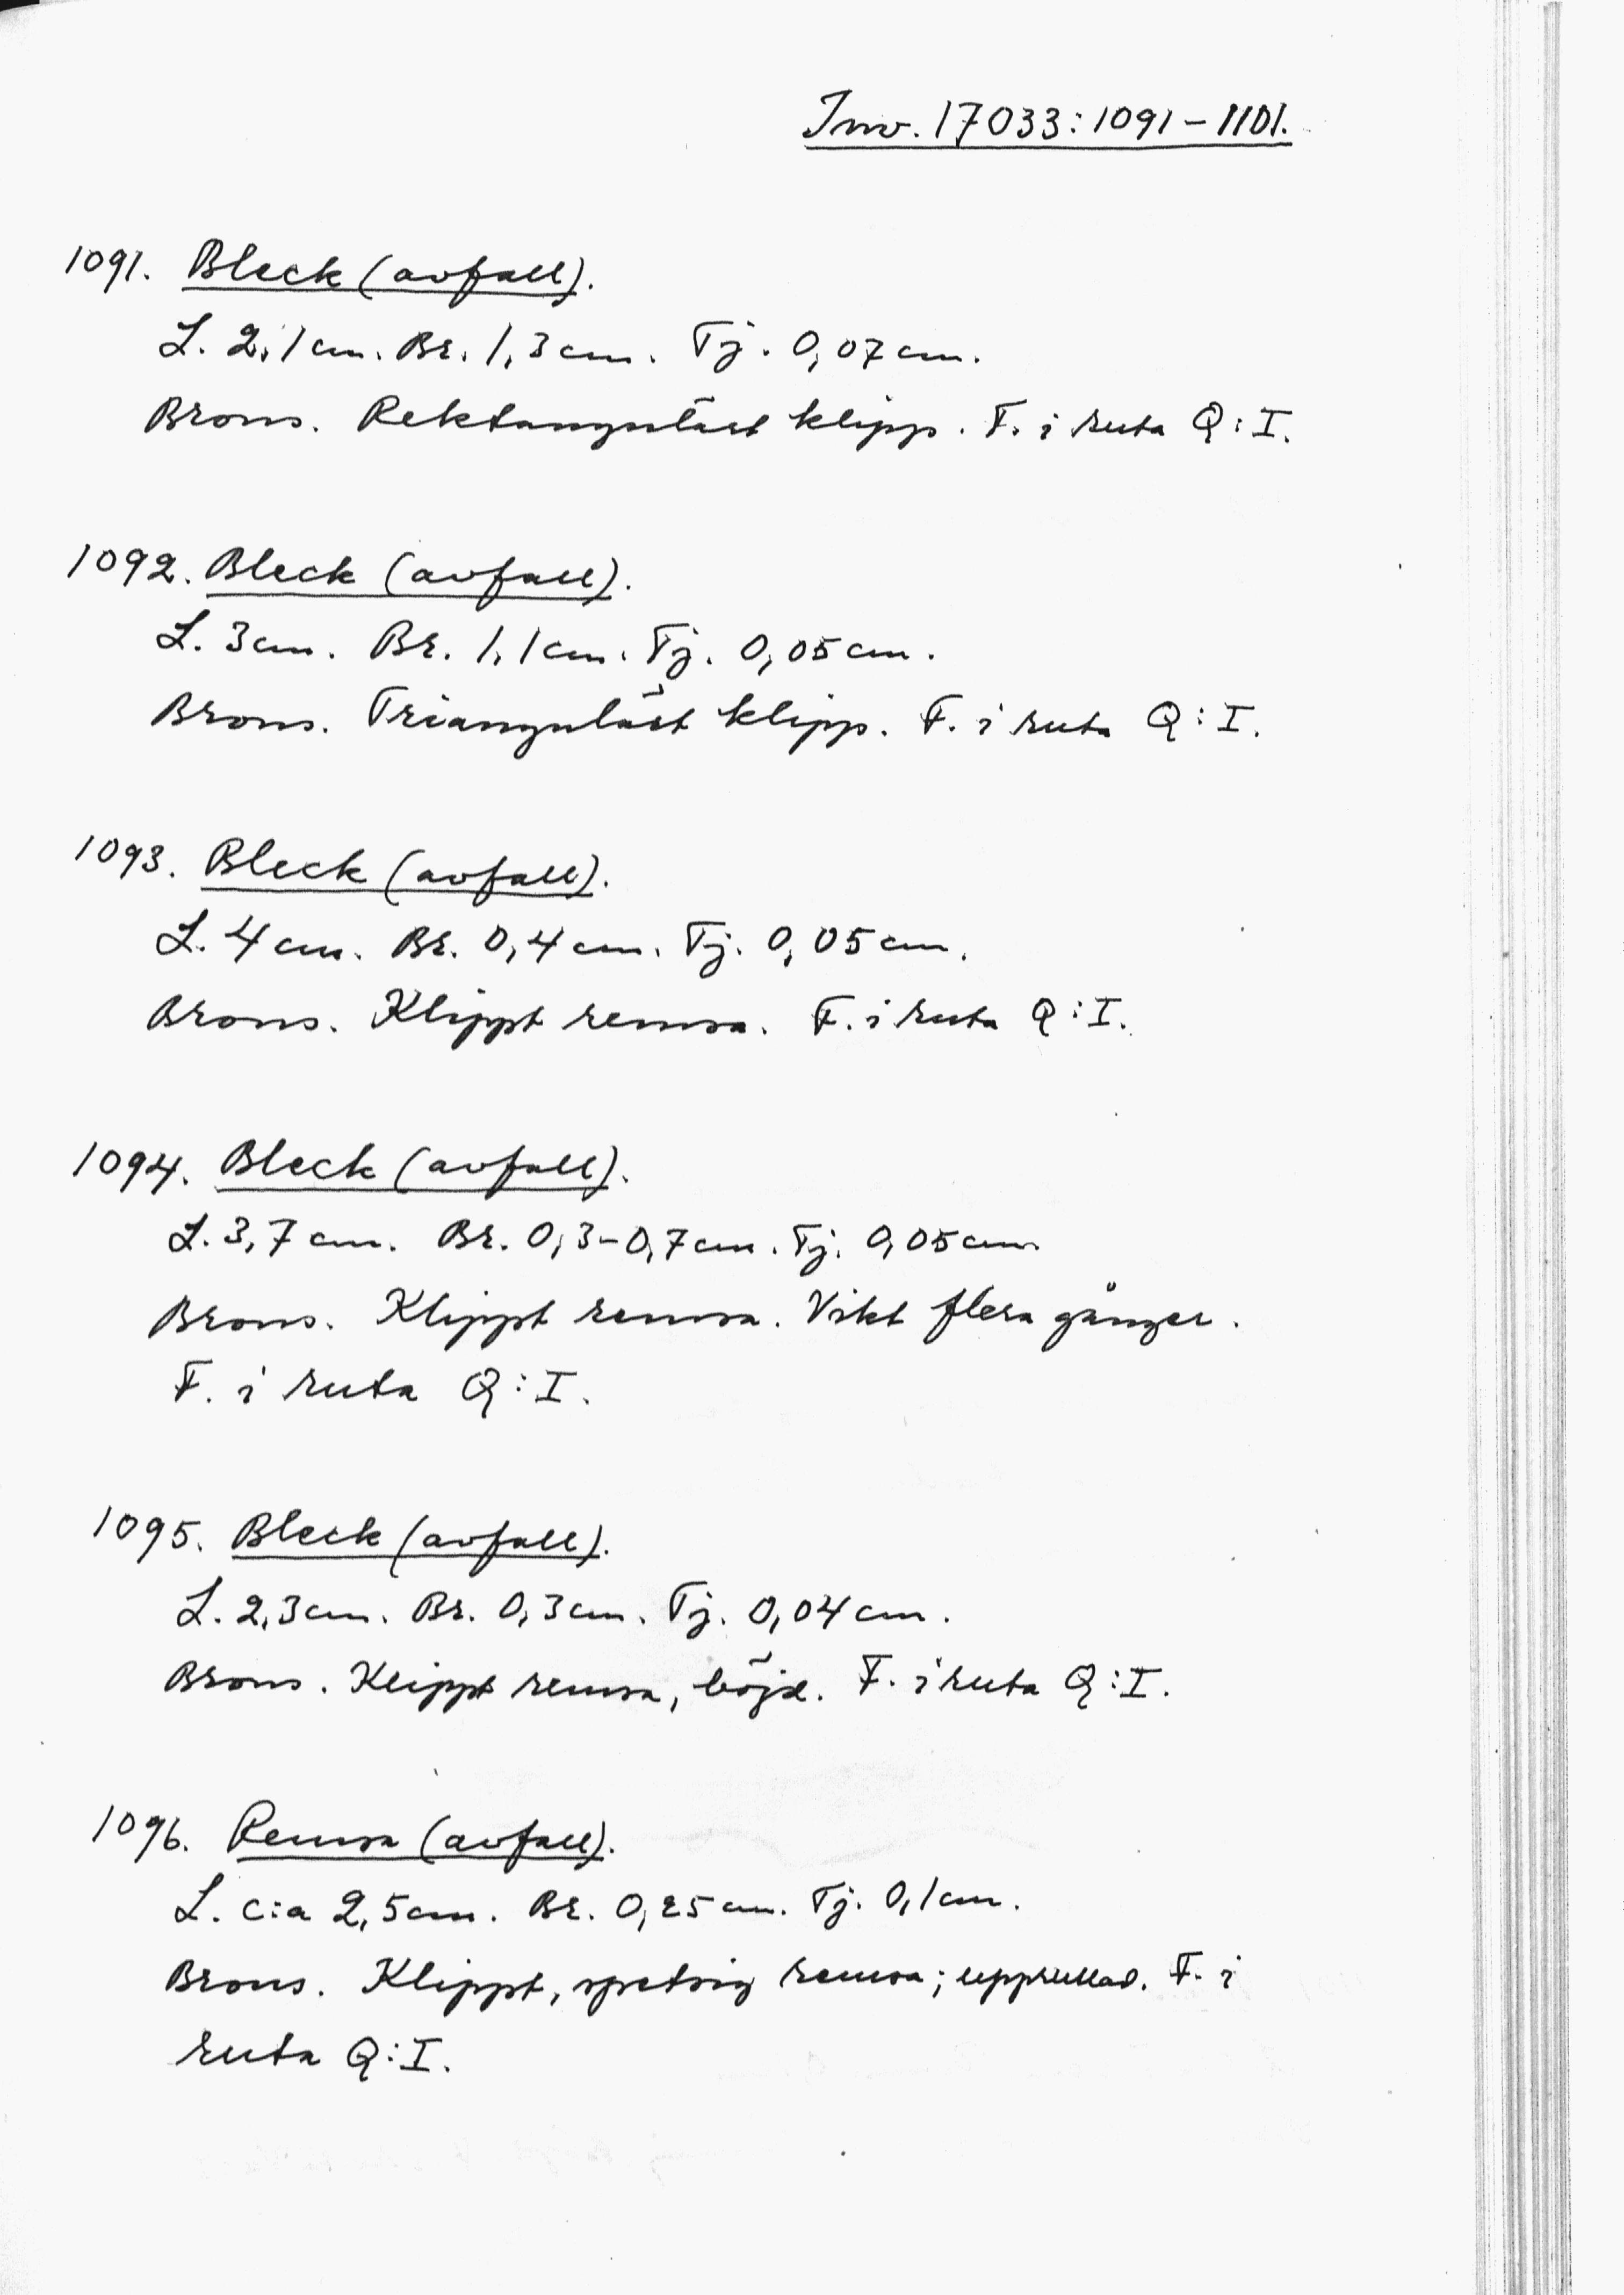 Inv. 17033:1091-1101.
1091. Bleck (avfall).
L. 2,1 cm. Br. 1,3 cm. Tj. 0,07 cm.
Brons. Rektangulärt klipp. F. i ruta Q:I.
1092. Bleck (avfall).
L. 3 cm. Br. 1,1 cm. Tj. 0,05 cm.
Brons. Triangulärt klipp. F. i ruta Q:I.
1093. Bleck (avfall).
L. 4 cm. Br. 0,4 cm. Tj. 0,05 cm.
Brons. Klippt remsa. F. i ruta Q:I.
1094. Bleck (avfall).
L. 3,7 cm. Br. 0,3-0,7 cm. Tj. 0,05 cm.
Brons. Klippt remsa. Vikt flera gånger.
F. i ruta Q:I.
1095. Bleck (avfall).
L. 2,3 cm. Br. 0,3 cm. Tj. 0,04 cm.
Brons. Klippt remsa, böjd. F. i ruta Q:I.
1096. Remsa (avfall).
L. c:a 2,5 cm. Br. 0,25 cm. Tj. 0,1 cm.
Brons. Klippt, spetsig remsa; upprullad. F. i
ruta Q:I.